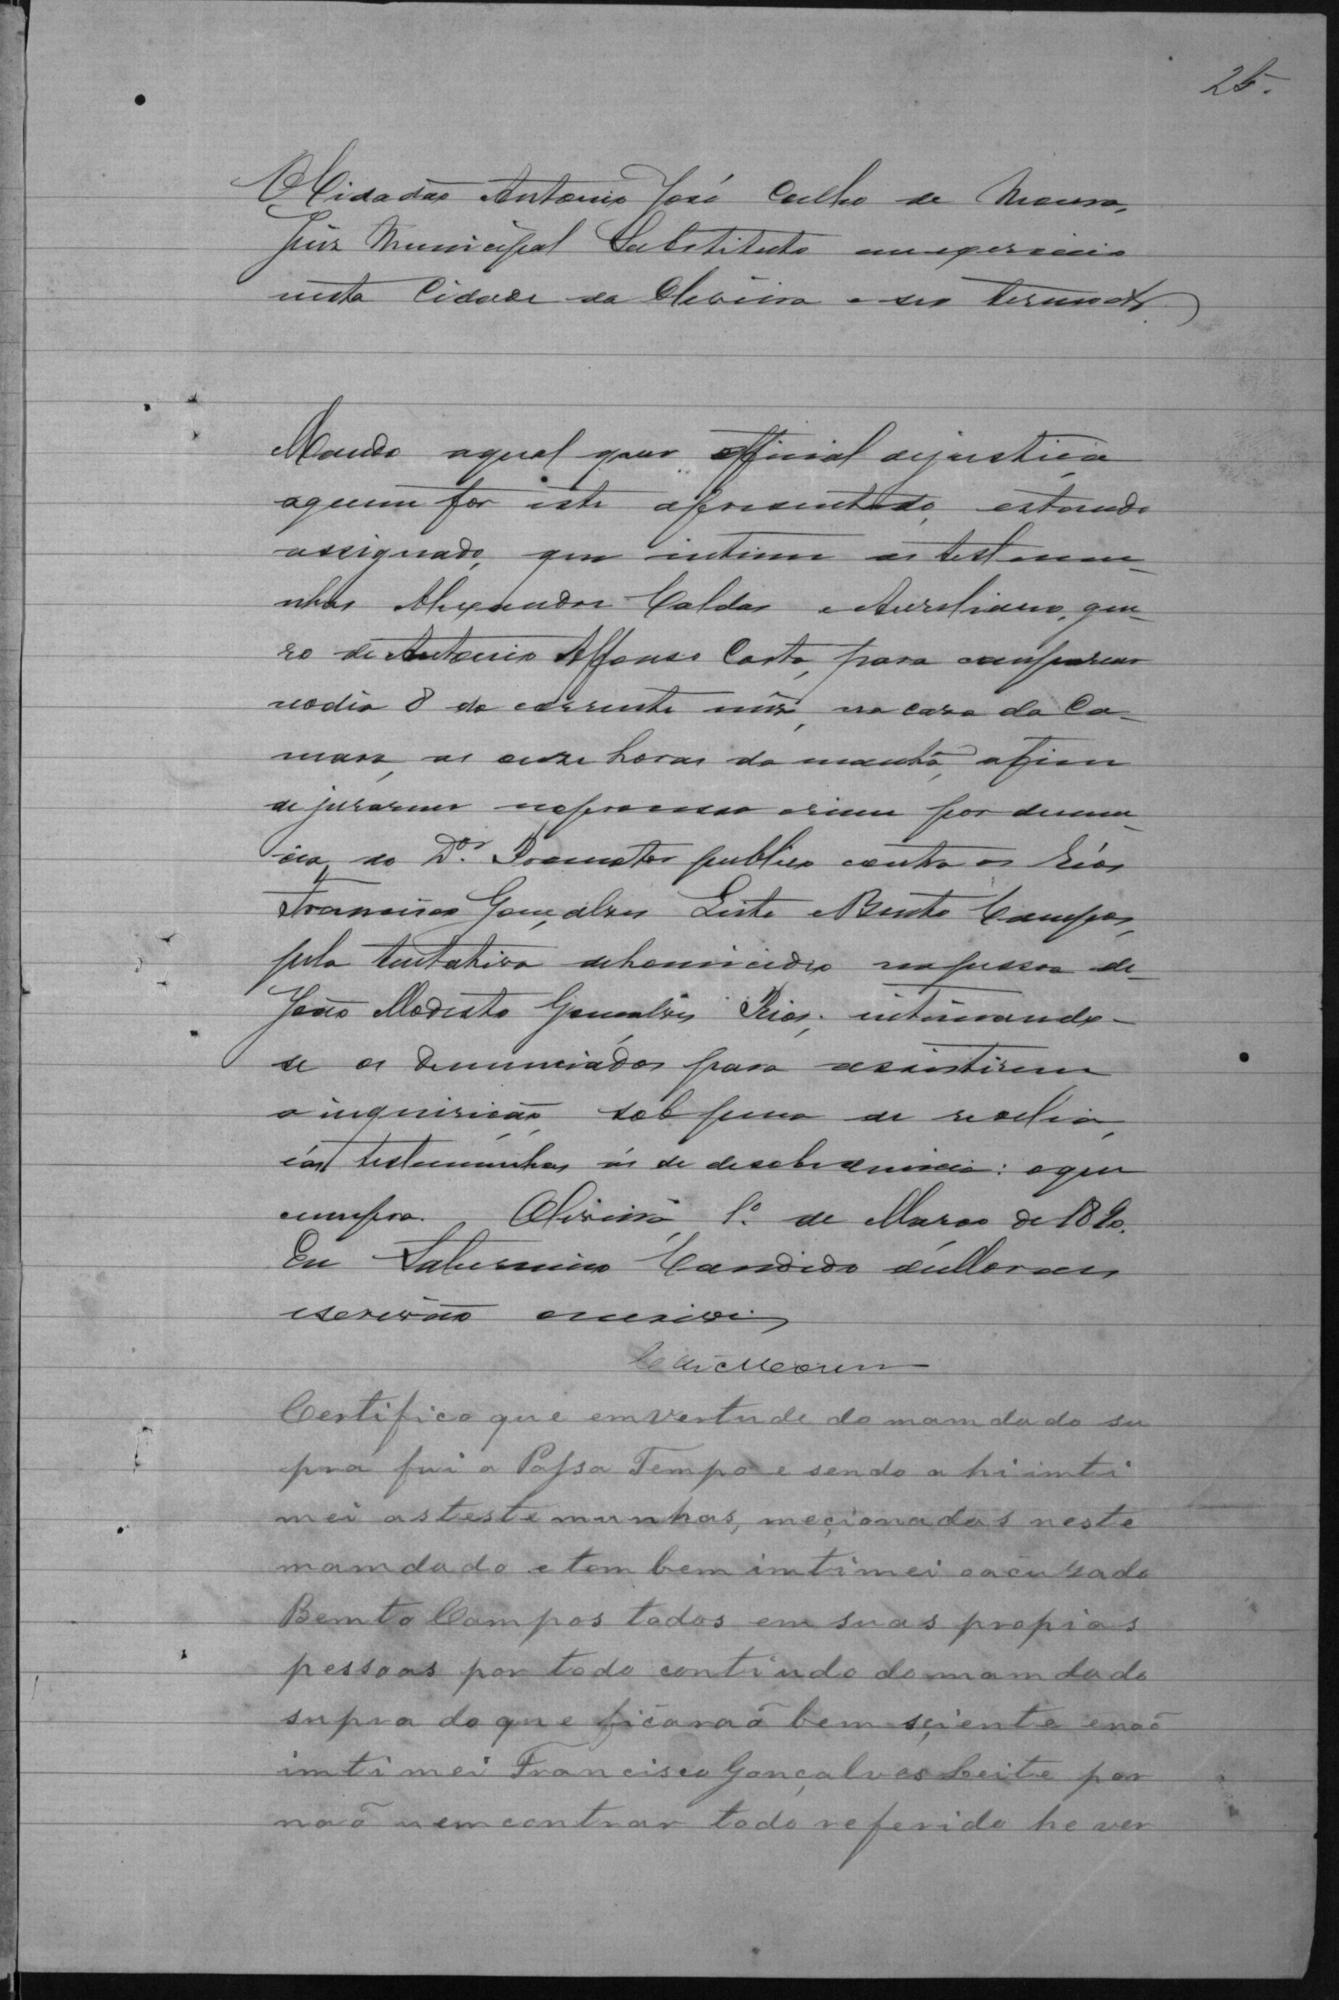 25.
O Cidadão Antonio José Coelho de Moura,
Juiz Municipal Substituto em exercicio
nesta Cidade da Oliveira e seu termo etc
Mando aqual quer official dejustiça
aquem for este apresentado, estando
assignado, que intime as testemu-
nhas Alexandre Caldas e Aureliano, gen-
ro de Antonio Affonso Costa, para comparecer
nodia 8 do corrente mês, na casa da Ca-
mara, as onze horas da manhã, afim
de jurarem noprocesso crime por denun-
cia do Dor. Promotor publico contra os Réos
Francisco Gonçalves Leite e Bento Campos,
pela tentativa dehomicidio napessoa de
João Modesto Gonçalves Rios; intimando-
se os denunciados para assistirem
a inquirição, sob pena de revelia,
e as testemunhas as de desobediencia: oque
cumpra. Oliveira, 1º de Março de 1890.
Eu Saturnino Candido de Moraes
escrivão o escrevi
C. de Moura
Certifico que emvertude do mamdado su
pra fui a Passa Tempo e sendo a hi imti
mei as testemunhas, meçionadas neste
mamdado e tombem imtimei oacuzado
Bemto Campos todos em suas propias
pessoas por todo contiudo do mamdado
supra do que ficaraõ bem sçiente enaõ
imtimei Francisco Gonçalves Leite por
naõ uemcontrar todo referido he ver